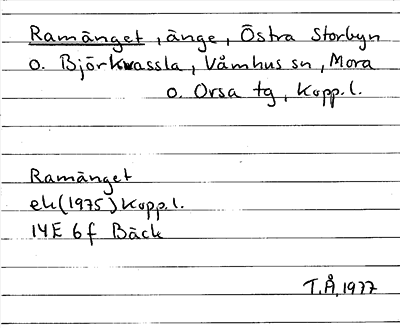 Ramänget, änge, Östra Storbyn
o. Björkvassla, Våmhus sn, Mora
o. Orsa tg, Kopp.l.
Ramänget
ek(1975)Kopp.l.
14E 6f Bäck
T.Å.1977